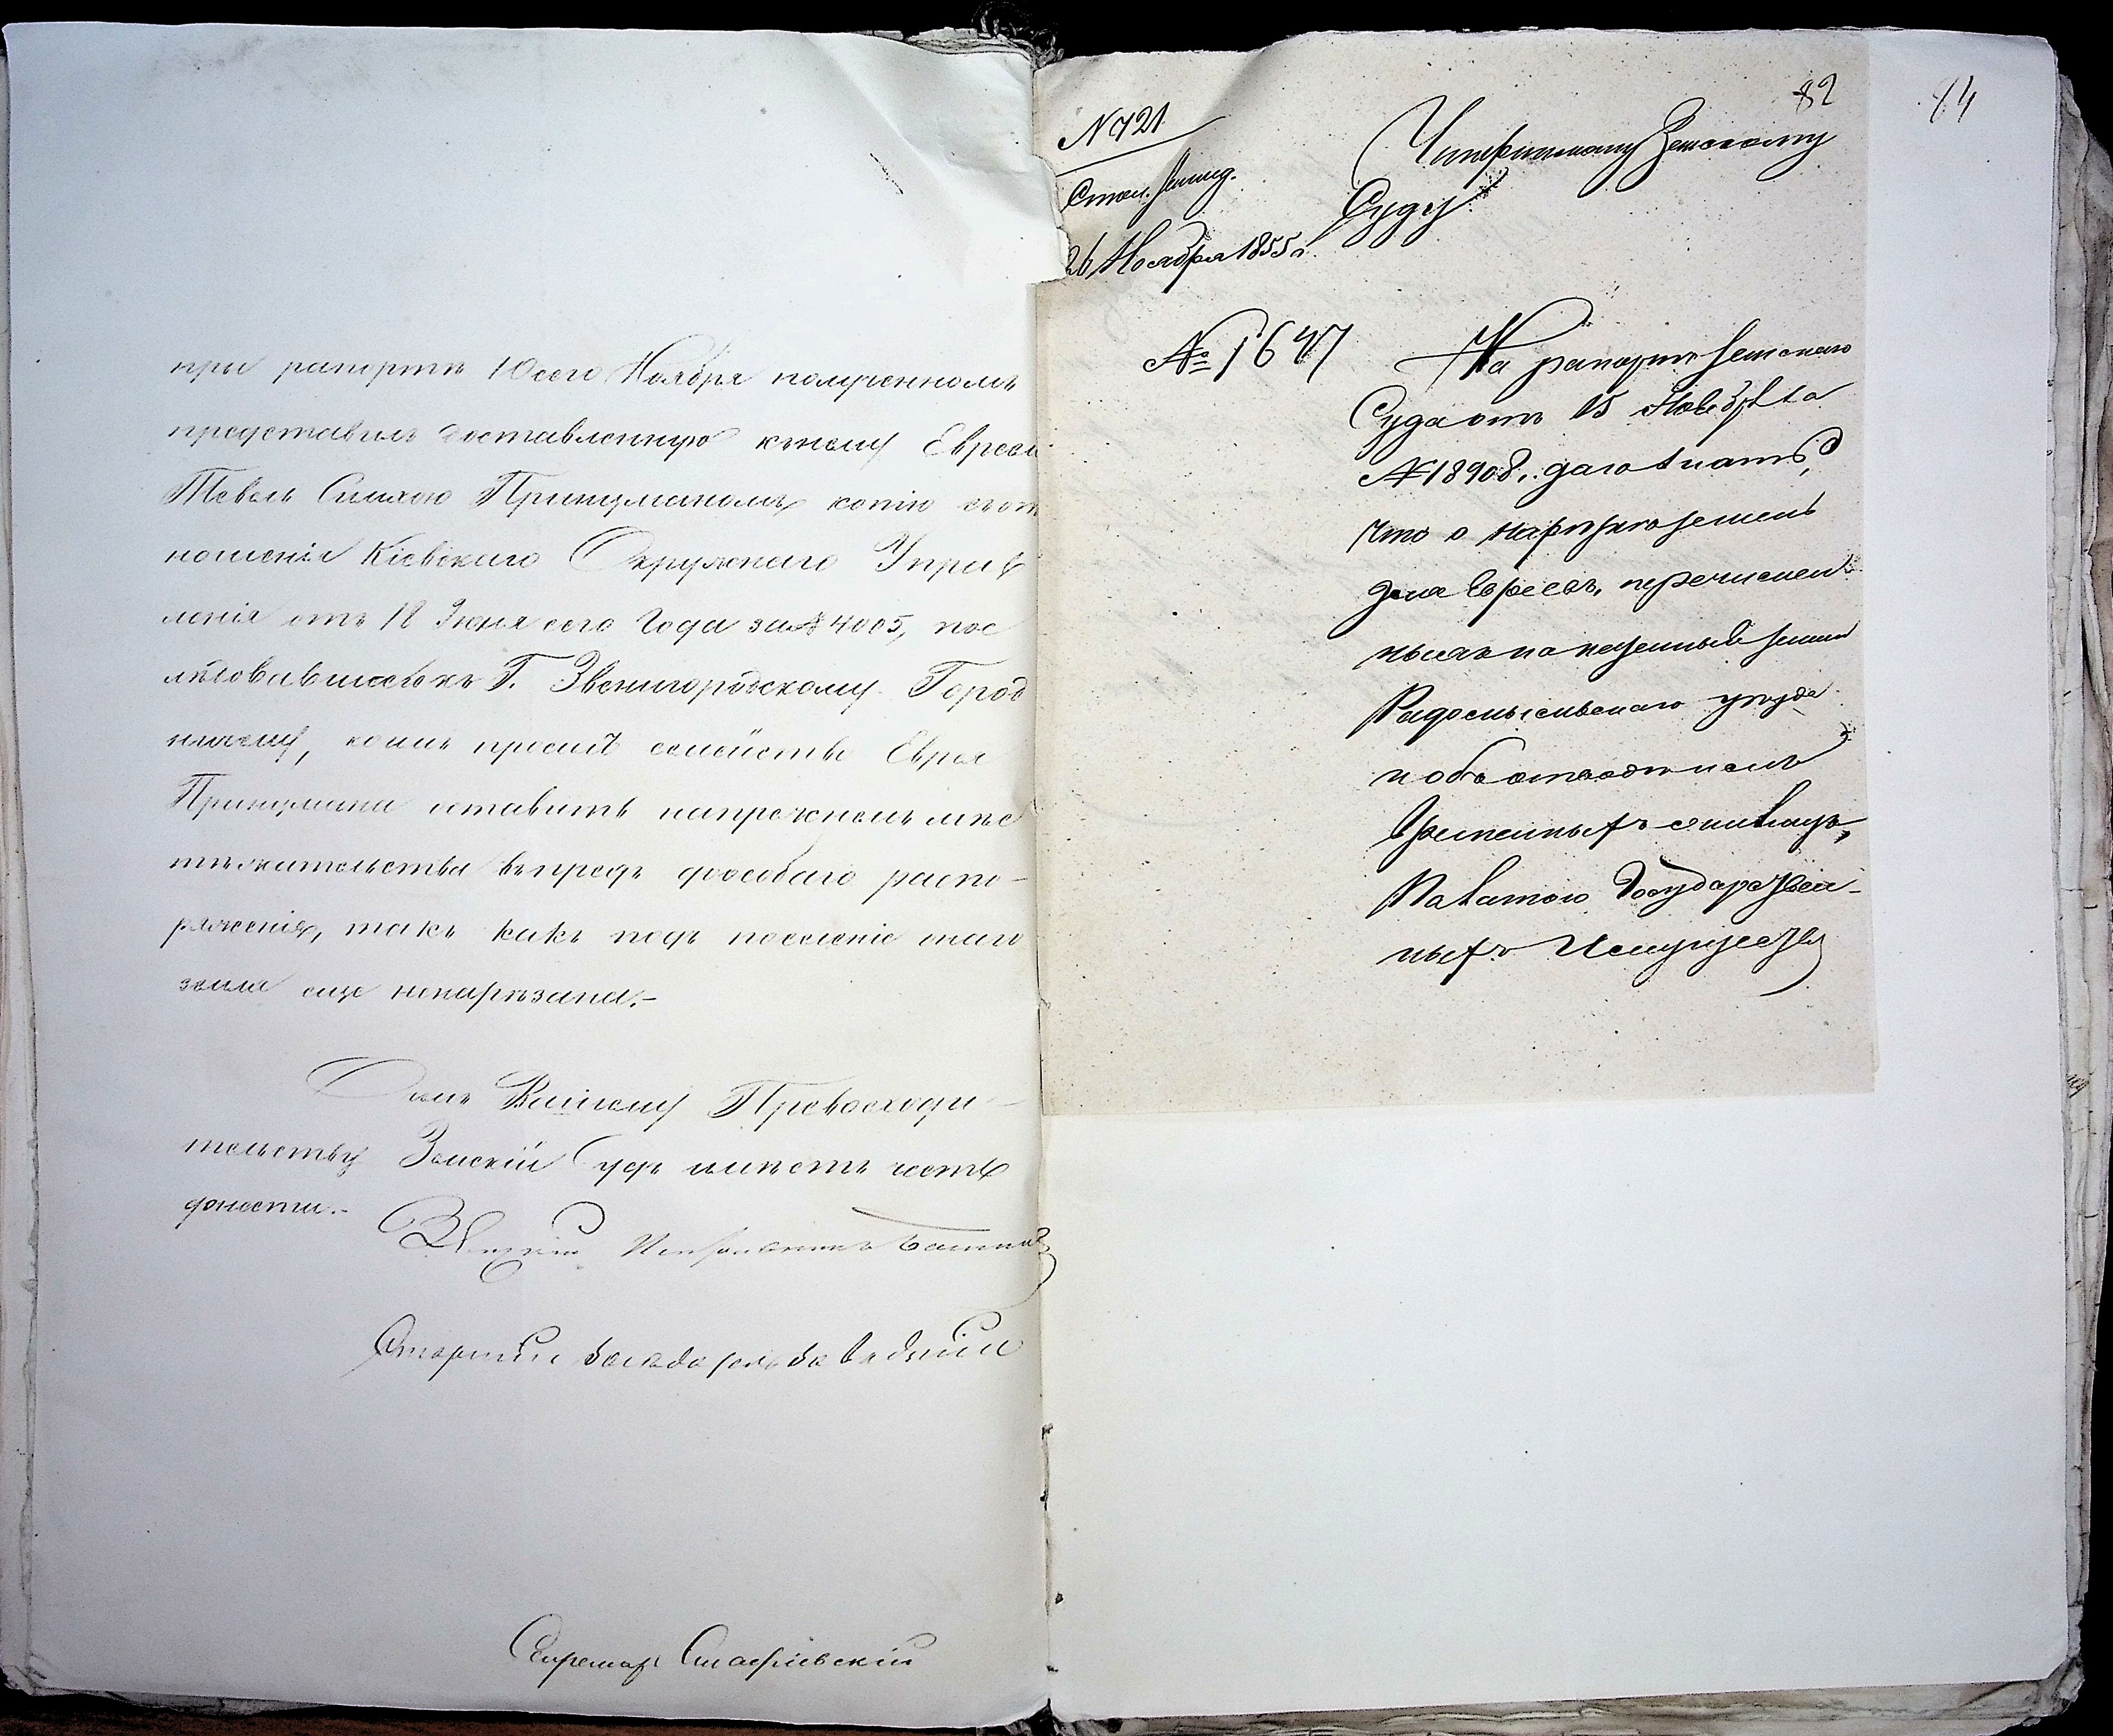 при рапортѣ 10 сего Ноября полученномъ
представилъ доставленную къ нему Евреемъ
Тевель Симхою Принцманомъ копію съ от
ношенія Кіевскаго Окружнаго Управ
ленія отъ 18 Іюня сего Года за № 4005, пос
лѣдовавшаго къ Г. Звенигородскому Город
ничему, коимъ проситъ семейство Еврея
Принцмана оставить на прежнемъ мѣс
тѣ жительства впредь до особаго распо-
ряженія, такъ какъ подъ поселеніе онаго
земля еще не нарѣзана.-
О чемъ Вашему Превосходи-
тельству Земскій Судъ имѣетъ честь
донести.-
Земскій Исправникъ
Старшій Засѣдатель
Секретарь
82
84
N 721
Стол.
26 Ноября 1855 г.
Чигиринскому Земскому
Суду
№ 1647
На рапортъ Земскаго
Суда отъ 15 Ноября за
№ 18908. даю знать,
что о нарѣзкѣ земель
для Евреевъ, перечислен
ныхъ на казенныя земли
Радомысльскаго уѣзда
и объ отводѣ имъ
временныхъ жилищъ,
Палатою Государствен-
ныхъ Имуществъ